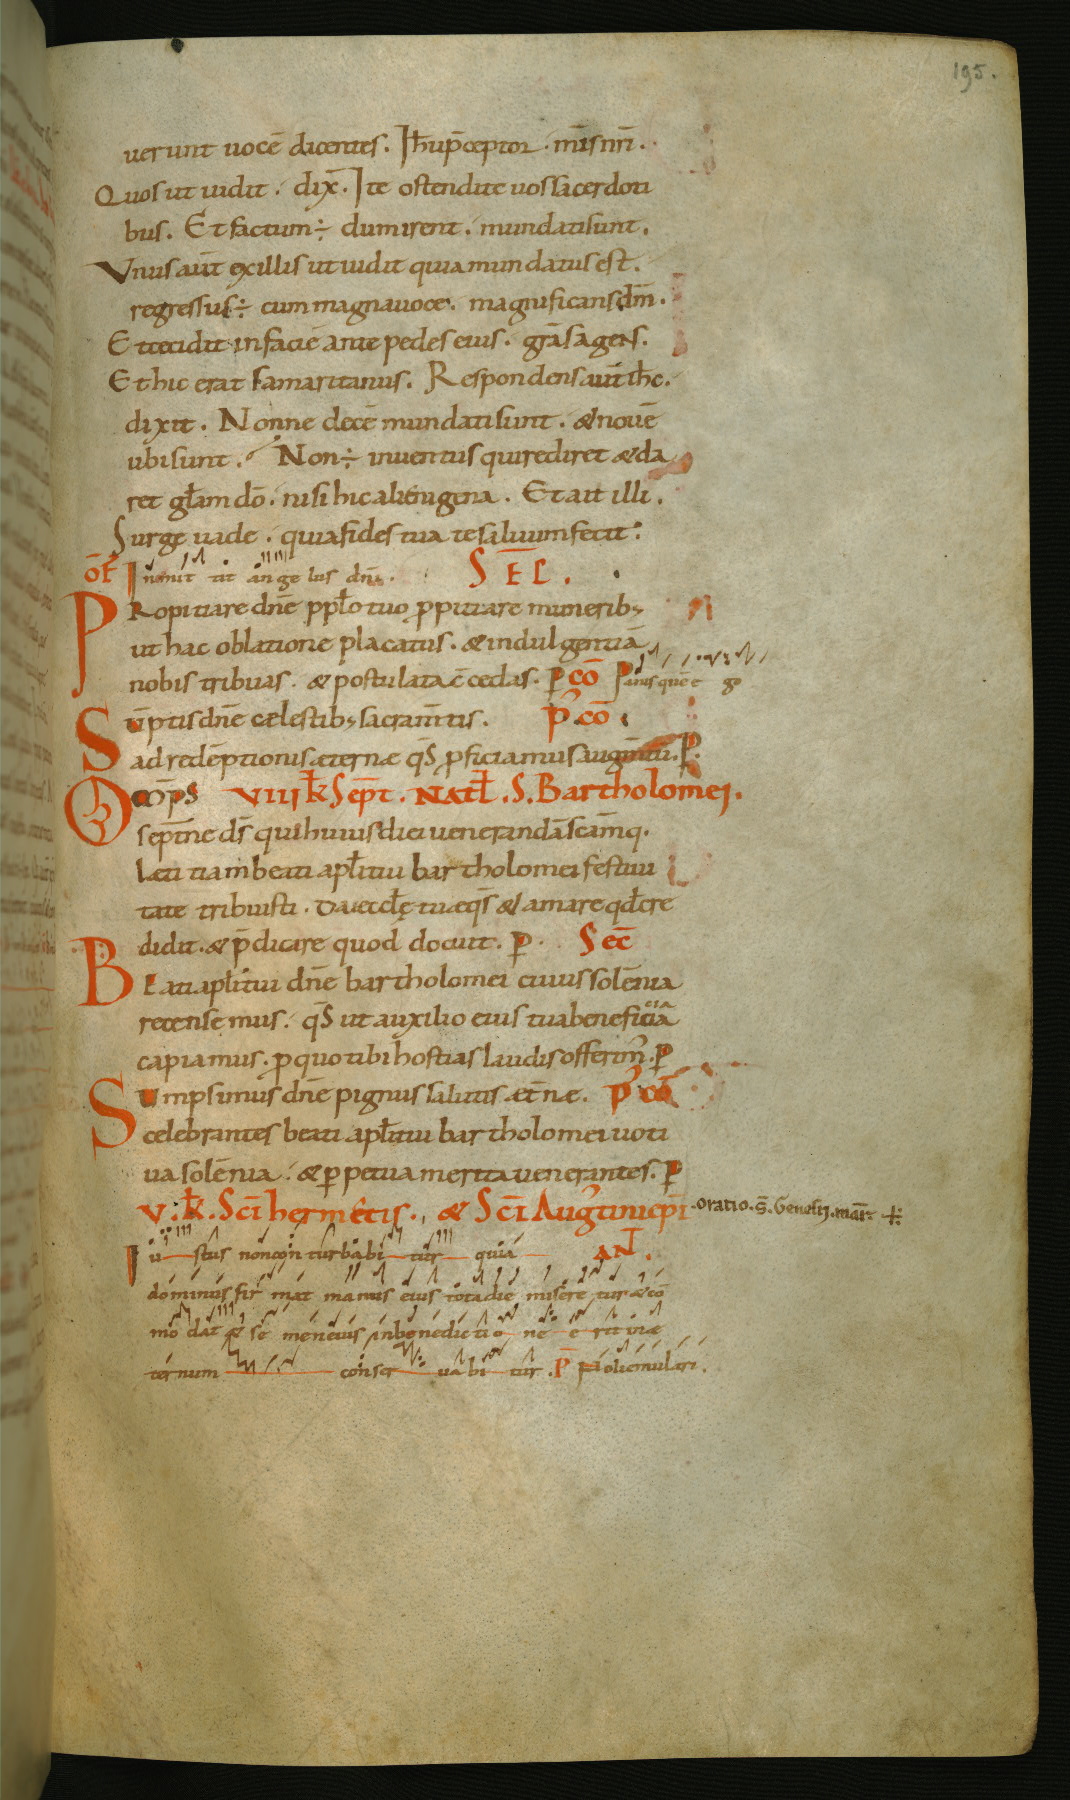 195.
uerunt uocē dicentes. Ih̄u p̄ceptor. mis̄ nr̄i.
Quos ut uidit. dix̄. Ite ostendite uos sacerdoti
bus. Et factum ÷ dum irent. mundati sunt.
Vnus aūt ex illis ut uidit quia mundatus est.
regressus ÷ cum magna uoce. magnificans dm̄.
Et cecidit in faciē ante pedes eius. grās agens.
Et hic erat samaritanus. Respondens aūt ih̄c.
dixit. Nonne decē mundati sunt. & nouē
ubi sunt. Non ÷ inuentus qui rediret & da
ret gl̄am dō. nisi hic alienigena. Et ait illi.
Surge uade. quia fides tua te saluum fecit.
OF̄ Inmit tit an ge lus dn̄s. SEC̄.
PRopitiare dn̄e ppl̄o tuo ꝓpitiare munerib;
ut hac oblatione placatus. & indulgentiā
nobis tribuas. & postulata c̄cedas. P̄ CŌ Panis quē e go
Sūptis dn̄e cęlestib; sacram̄tis. P̄ CŌ
ad redēptionis æternæ qs̄ ꝓficiamus augm̄tū. P.
OMPS VIIII K̄ SEPT̄. NAT̄L. S. Bartholomei.
sept̄ne ds̄ qui huius diei uenerandā sc̄amq.
lætitiam beati apl̄i tui bartholomei festiui
tate tribuisti. Da eccl̄ę tuæ qs̄ & amare qd̄ cre
didit. & p̄dicare quod docuit. P. SEC̄
BEati apl̄i tui dn̄e bartholomei cuius solēnia
recensemus. qs̄ ut auxilio eius tua beneficia
capiamus. ꝓ quo tibi hostias laudis offerim̄. P
SVmpsimus dn̄e pignus salutis æt̄næ. P̄ CŌ
celebrantes beati apl̄i tui bartholomei uoti
ua solēnia. & ꝑpetua merita uenerantes. P
V. K̄. SC̄I hermetis. & SC̄I Augustini ep̄i. oratio. s̄. Genesij. mar̄.
Iu stus non con turbabi tur quia AÑ.
dominus fir mat manus eius tota die misere tur & cō
mo dat & se men eius in benedictio ne e rit in æ
ternum conser uabi tur. P̄ Noli emulari.